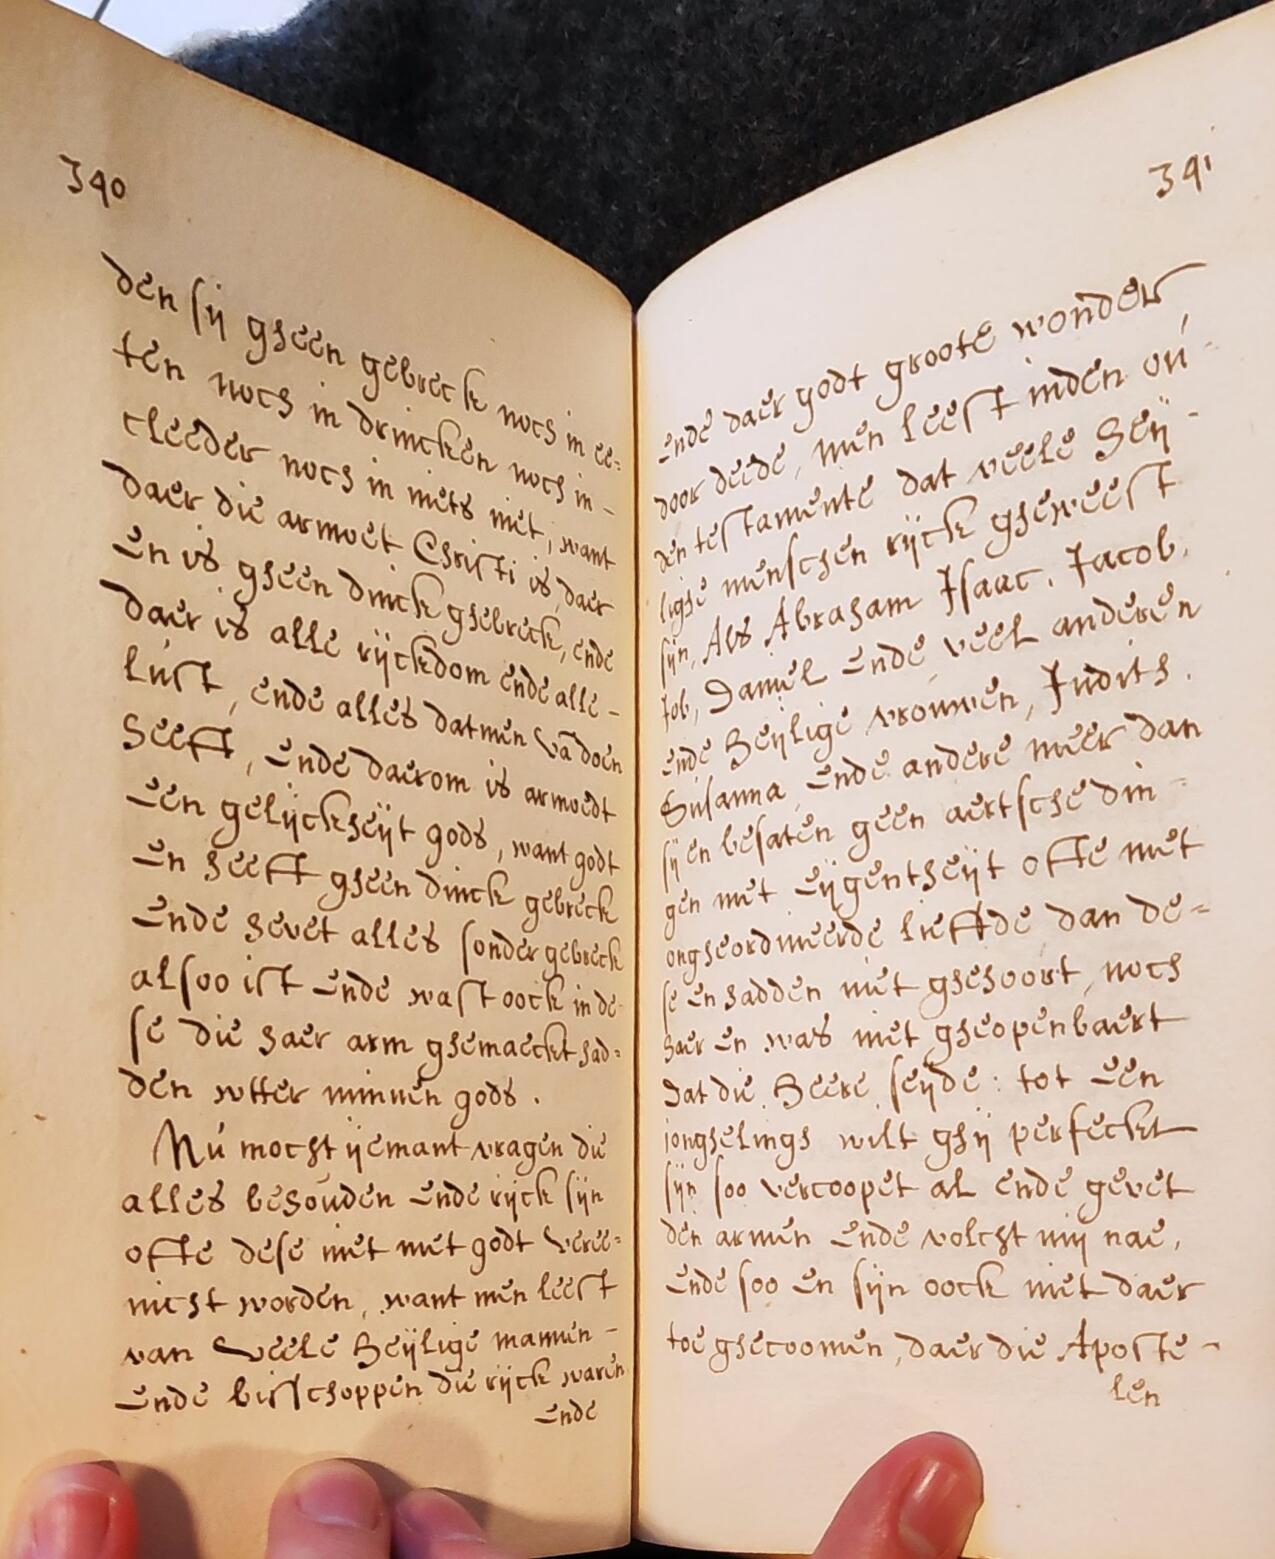 390
den sij gheen gebreck noch in ee=
ten noch in drincken noch in-
cleeder noch in niets niet, want
daer die armoet Christi is, daer
en is gheen dinck ghebreck, ende
daer is alle rijckdom ende alle-
lust, ende alles datmen vā doen
heeft, ende daerom is armoedt
een gelijckheijt gods, want godt
en heeft gheen dinck gebreck
ende hevet alles sonder gebreck
alsoo ist ende wast oock in de-
se die haer arm ghemaeckt had=
den wtter minnen gods.
Nú mocht ijemant vragen die
alles behouden ende rijck sijn
ofte dese niet met godt veree=
nicht worden, want men leest
van veele heijlige mannen-
ende bisschoppen die rijck waren
ende
391
ende daer godt groote wonder
door dede, men leest inden oú-
den testamente dat veele heij-
lighe menschen rijck gheweest
sijn, Als Abraham Isaac. Jacob.
Job, Daniel ende veel anderen
ende heijlige vrouwen, Judith.
Susanna, ende andere meer dan
sij en besaten geen aertsche din-
gen met eijgentheijt ofte met
ongheordineerde lieffde dan de=
se en hadden niet ghehoort, noch
haer en was niet gheopenbaert
dat die heere seijde: tot een
jonghelingh wilt ghij perfeckt
sijn soo vercoopet al ende gevet
den armen ende volcht mij nae,
ende soo en sijn oock niet daer
toe ghecoomen, daer die Aposte-
len